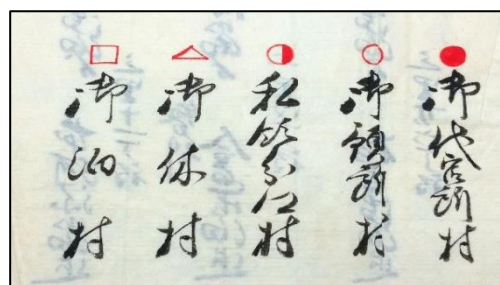 御代官所村
御預所村
私領分郷村
御休村
御泊村